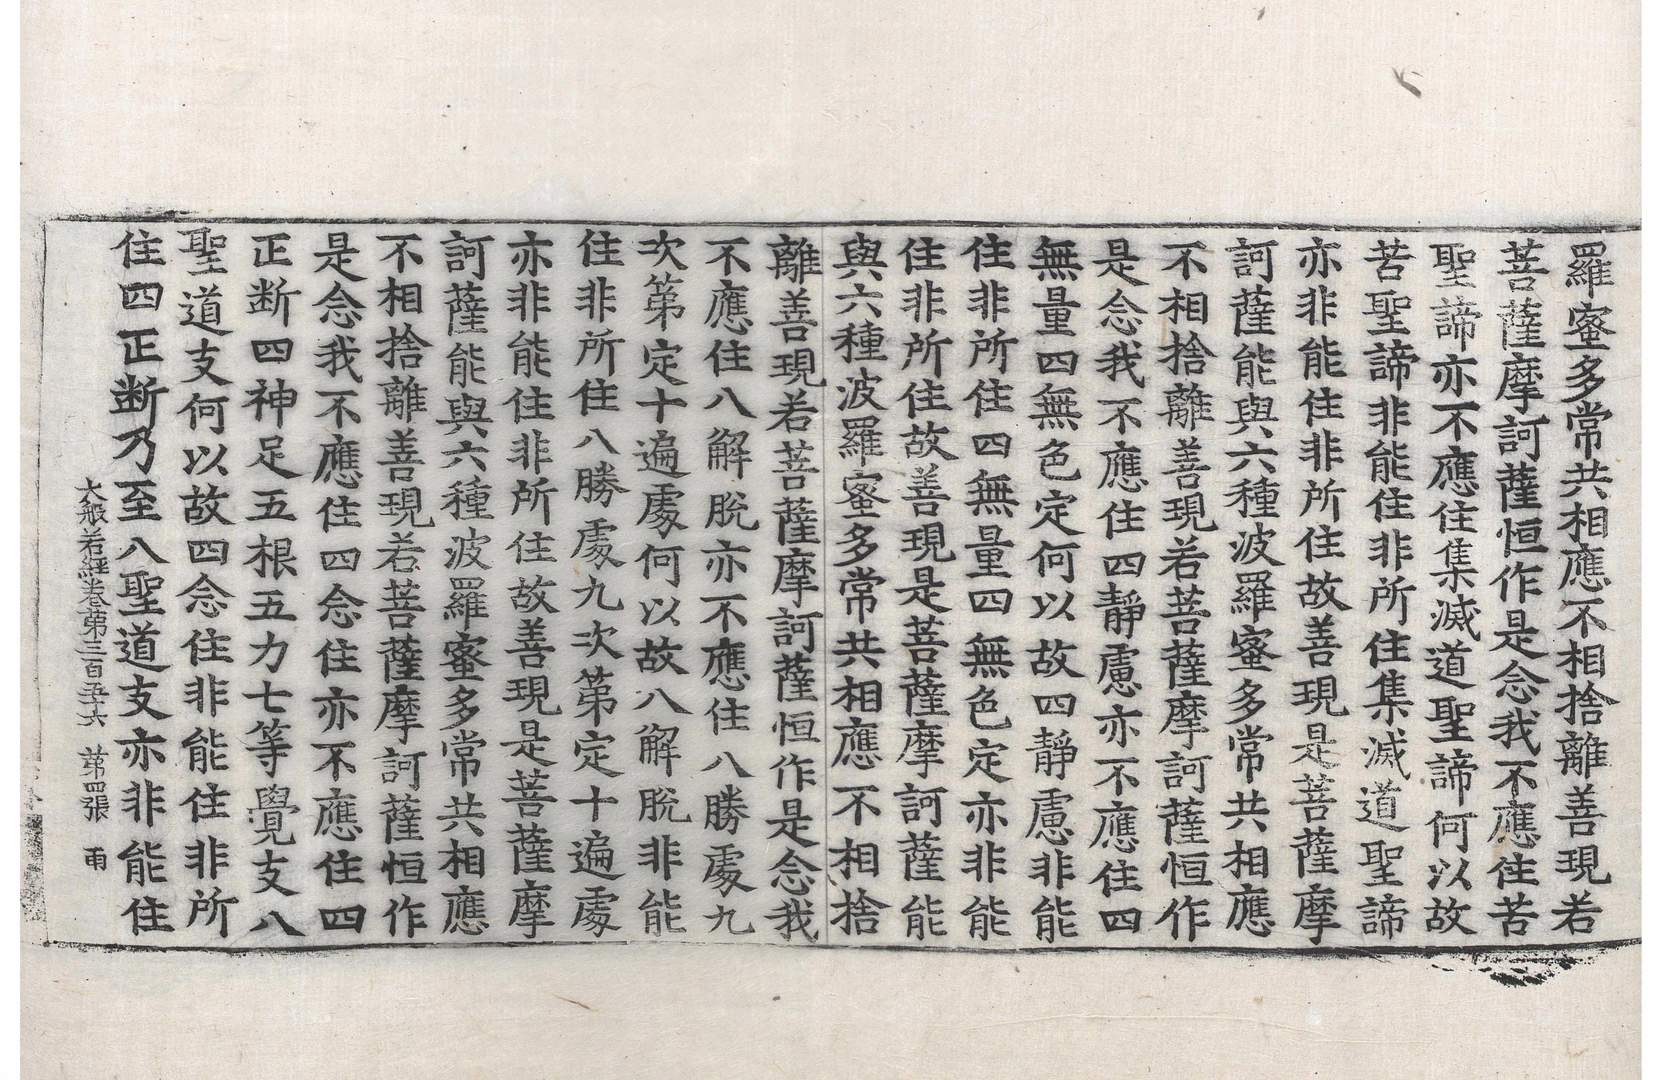 羅蜜多常共相應不相捨離善現若
菩薩摩訶薩恒作是念我不應住苦
聖諦亦不應住集滅道聖諦何以故
苦聖諦非能住非所住集滅道聖諦
亦非能住非所住故善現是菩薩摩
訶薩能與六種波羅蜜多常共相應
不相捨離善現若菩薩摩訶薩恒作
是念我不應住四靜慮亦不應住四
無量四無色定何以故四靜慮非能
住非所住四無量四無色定亦非能
住非所住故善現是菩薩摩訶薩能
與六種波羅蜜多常共相應不相捨
離善現若菩薩摩訶薩恒作是念我
不應住八解脫亦不應住八勝處九
次第定十遍處何以故八解脫非能
住非所住八勝處九次第定十遍處
亦非能住非所住故善現是菩薩摩
訶薩能與六種波羅蜜多常共相應
不相捨離善現若菩薩摩訶薩恒作
是念我不應住四念住亦不應住四
正断四神足五根五力七等覺支八
聖道支何以故四念住非能住非所
住四正断乃至八聖道支亦非能住
大般若經卷第三百五十六 第四張 雨